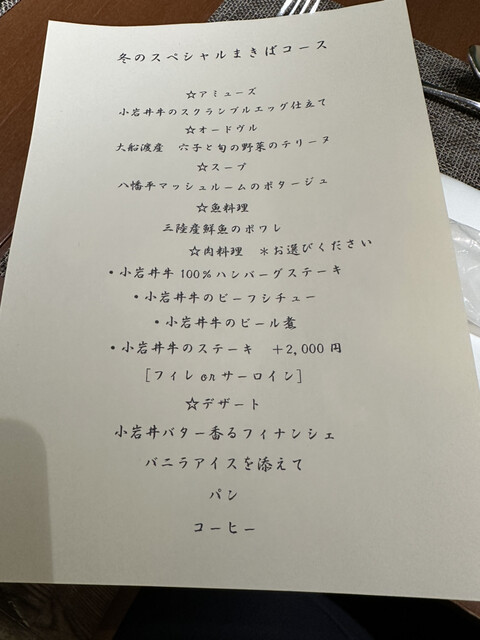 冬のスペシャルまきばコース
☆アミューズ
小岩井牛のスクランブルエッグ仕立て
☆オードヴル
大船渡産　穴子と旬の野菜のテリーヌ
☆スープ
八幡平マッシュルームのポタージュ
☆魚料理
三陸産鮮魚のポワレ
☆肉料理　＊お選びください
・小岩井牛100％ハンバーグステーキ
・小岩井牛のビーフシチュー
・小岩井牛のビール煮
・小岩井牛のステーキ　＋2,000円
［フィレorサーロイン］
☆デザート
小岩井バター香るフィナンシェ
バニラアイスを添えて
パン
コーヒー